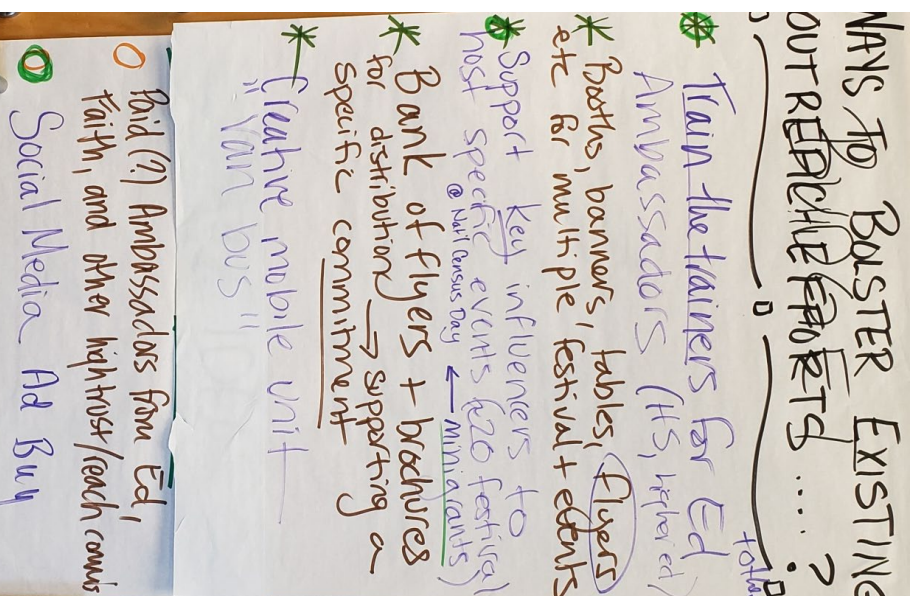 WAYS TO BOLSTER EXISTING
OUTREACH EFFORTS....?
* Train the trainers for Ed
Ambassadors (HS, higher ed)
* Booths, banners, tables, flyers
etc for multiple festival + events
* Support key influencers to
host specific events (@20 festival
@ Nat'l Census Day ← minigrants)
* Bank of flyers + brochures
for distribution → supporting a
specific commitment
* Creative mobile unit
"Van bus"
Paid (?) Ambassadors from Ed,
Faith, and other high trust/reach comm's
Social Media Ad Buy